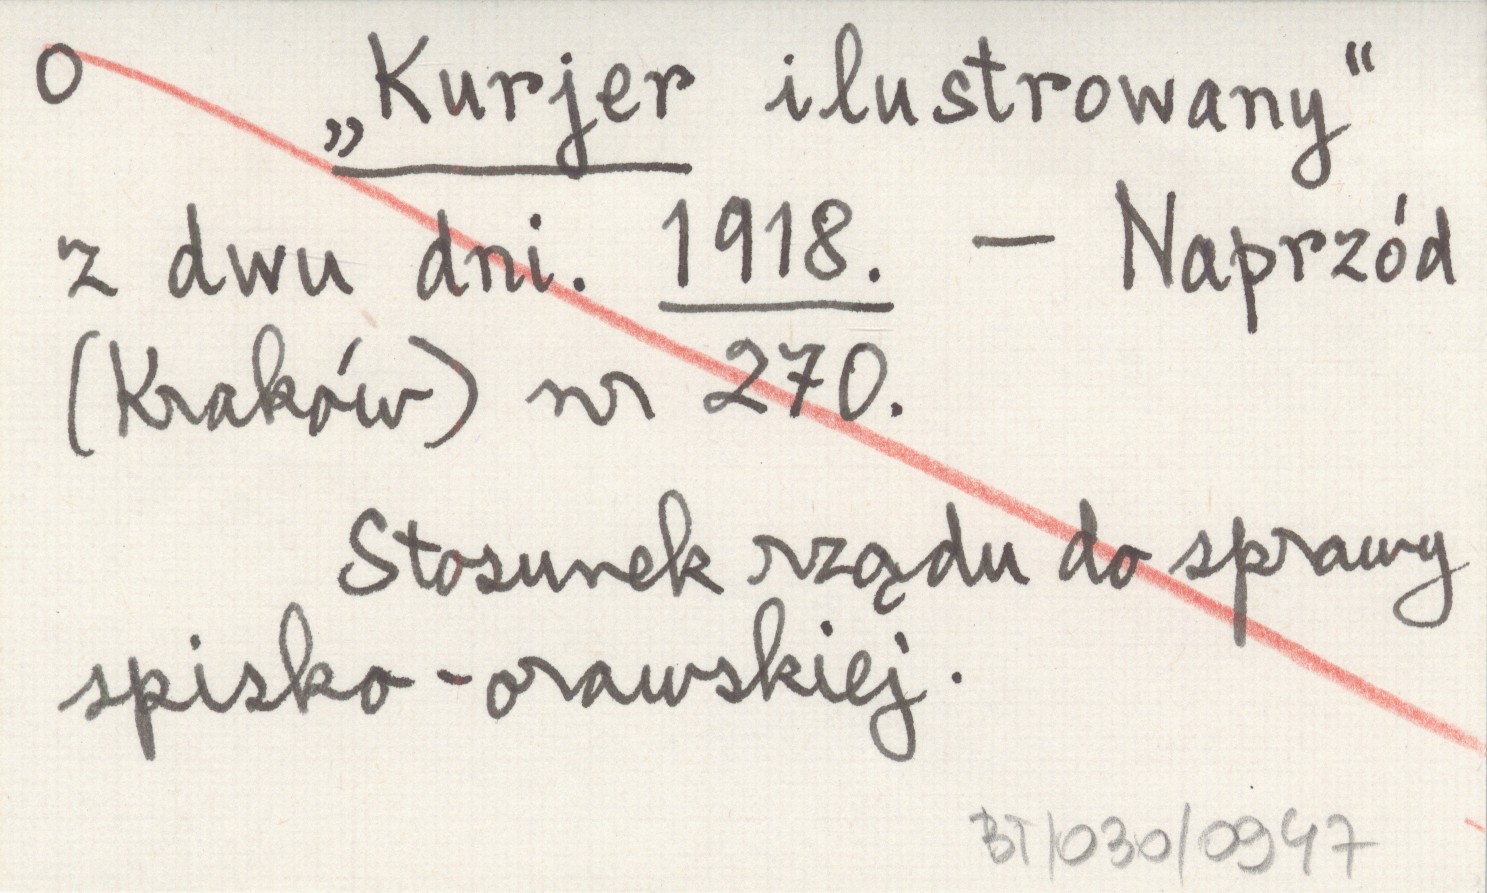 O
„Kurjer ilustrowany“
z dwu dni. 1918. — Naprzód
(Kraków) nr 270.
Stosunek rządu do sprawy
spisko-orawskiej.
BT/030/0947